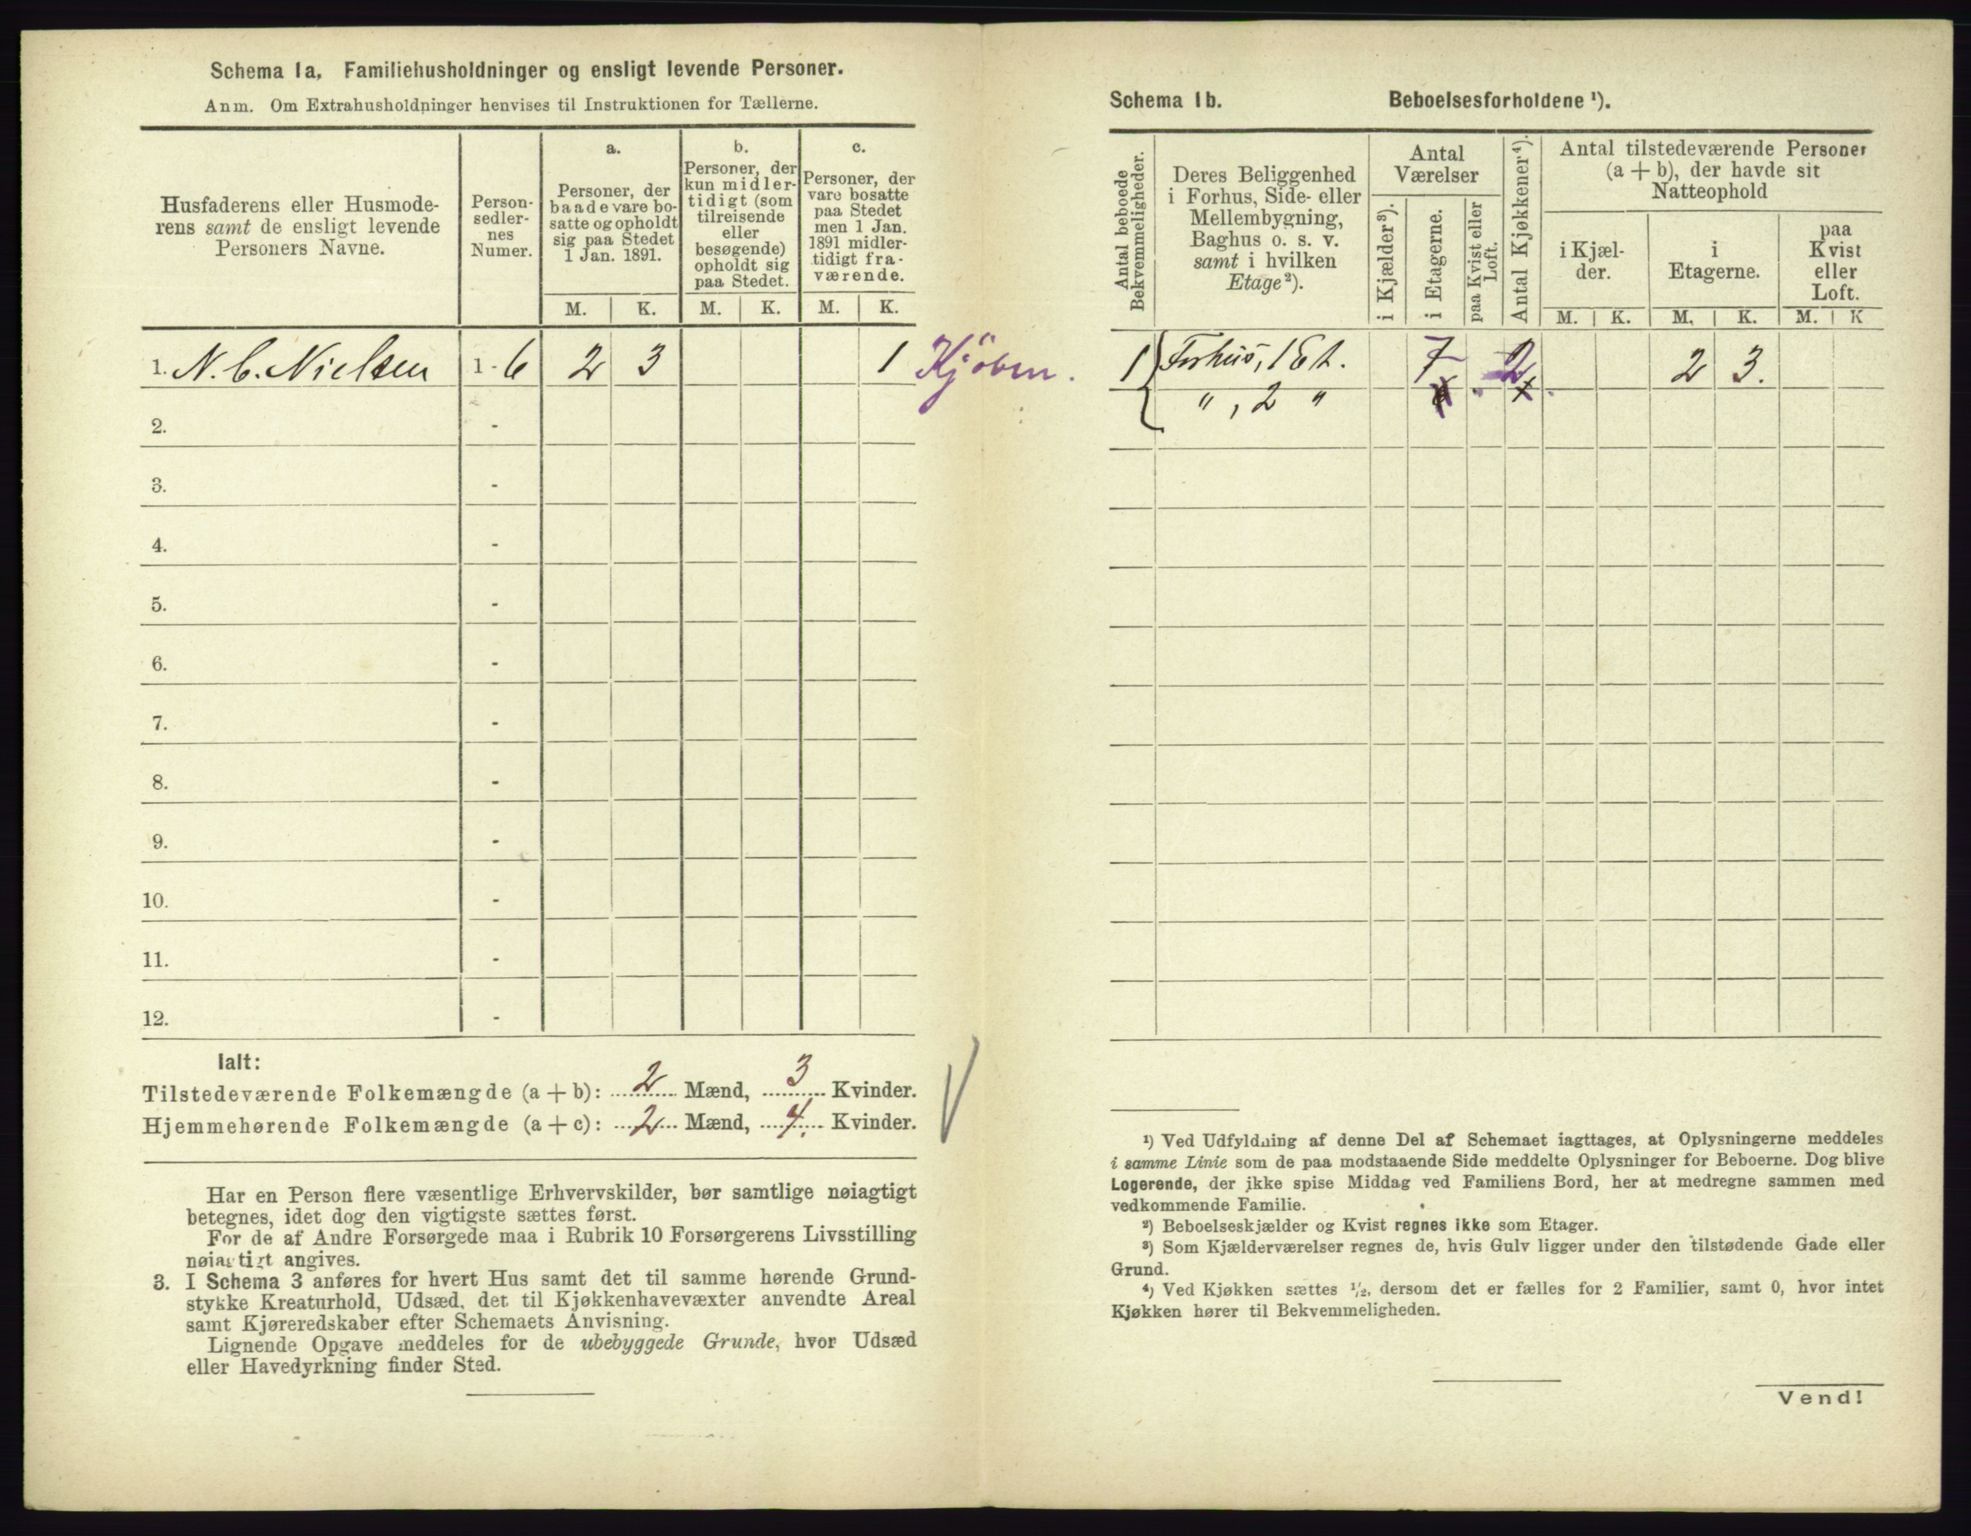 Schema 1a, Familiehusholdninger og ensligt levende Personer.
Anm. Om Extrahusholdninger henvises til Instruktionen for Tællerne.
Husfaderens eller Husmode-
rens samt de ensligt levende
Personers Navne.
Person-
sedler-
nes
Numer.
a.
Personer, der
baade vare bo-
satte og opholdt
sig paa Stedet
1 Jan. 1891.
b.
Personer, der
kun midler-
tidigt (som
tilreisende
eller
besøgende)
opholdt sig
paa Stedet.
c.
Personer, der
vare bosatte
paa Stedet
men 1 Jan.
1891 midler-
tidigt fra-
værende.
M. K. M. K. M. K.
1. N. C. Nielsen 1 - 6 2 3 1 Kjøben.
2. -
3. -
4. -
5. -
6. -
7. -
8. -
9. -
10. -
11. -
12. -
Ialt:
Tilstedeværende Folkemængde (a + b): 2 Mænd, 3 Kvinder.
Hjemmehørende Folkemængde (a + c): 2 Mænd, 4. Kvinder.
Har en Person flere væsentlige Erhvervskilder, bør samtlige nøiagtigt
betegnes, idet dog den vigtigste sættes først.
For de af Andre Forsørgede maa i Rubrik 10 Forsørgerens Livsstilling
nøiagtigt angives.
3. I Schema 3 anføres for hvert Hus samt det til samme hørende Grund-
stykke Kreaturhold, Udsæd, det til Kjøkkenhavevæxter anvendte Areal
samt Kjøreredskaber efter Schemaets Anvisning.
Lignende Opgave meddeles for de ubebyggede Grunde, hvor Udsæd
eller Havedyrkning finder Sted.
Schema 1b. Beboelsesforholdene ¹).
Antal beboede
Bekvemmeligheder.
Deres Beliggenhed
i Forhus, Side- eller
Mellembygning,
Baghus o. s. v.
samt i hvilken
Etage²).
Antal
Værelser
i Kjælder³).
i Etagerne.
paa Kvist eller
Loft.
Antal Kjøkkener⁴).
Antal tilstedeværende Personer
(a + b), der havde sit
Natteophold
i Kjæl-
der.
i
Etagerne.
paa
Kvist
eller
Loft.
M. K. M. K. M. K
1 Forhus, 1 Et. 7 2 2 3.
" , 2 "
¹) Ved Udfyldning af denne Del af Schemaet iagttages, at Oplysningerne meddeles
i samme Linie som de paa modstaaende Side meddelte Oplysninger for Beboerne. Dog blive
Logerende, der ikke spise Middag ved Familiens Bord, her at medregne sammen med
vedkommende Familie.
²) Beboelseskjælder og Kvist regnes ikke som Etager.
³) Som Kjælderværelser regnes de, hvis Gulv ligger under den tilstødende Gade eller
Grund.
⁴) Ved Kjøkken sættes ½, dersom det er fælles for 2 Familier, samt 0, hvor intet
Kjøkken hører til Bekvemmeligheden.
Vend!